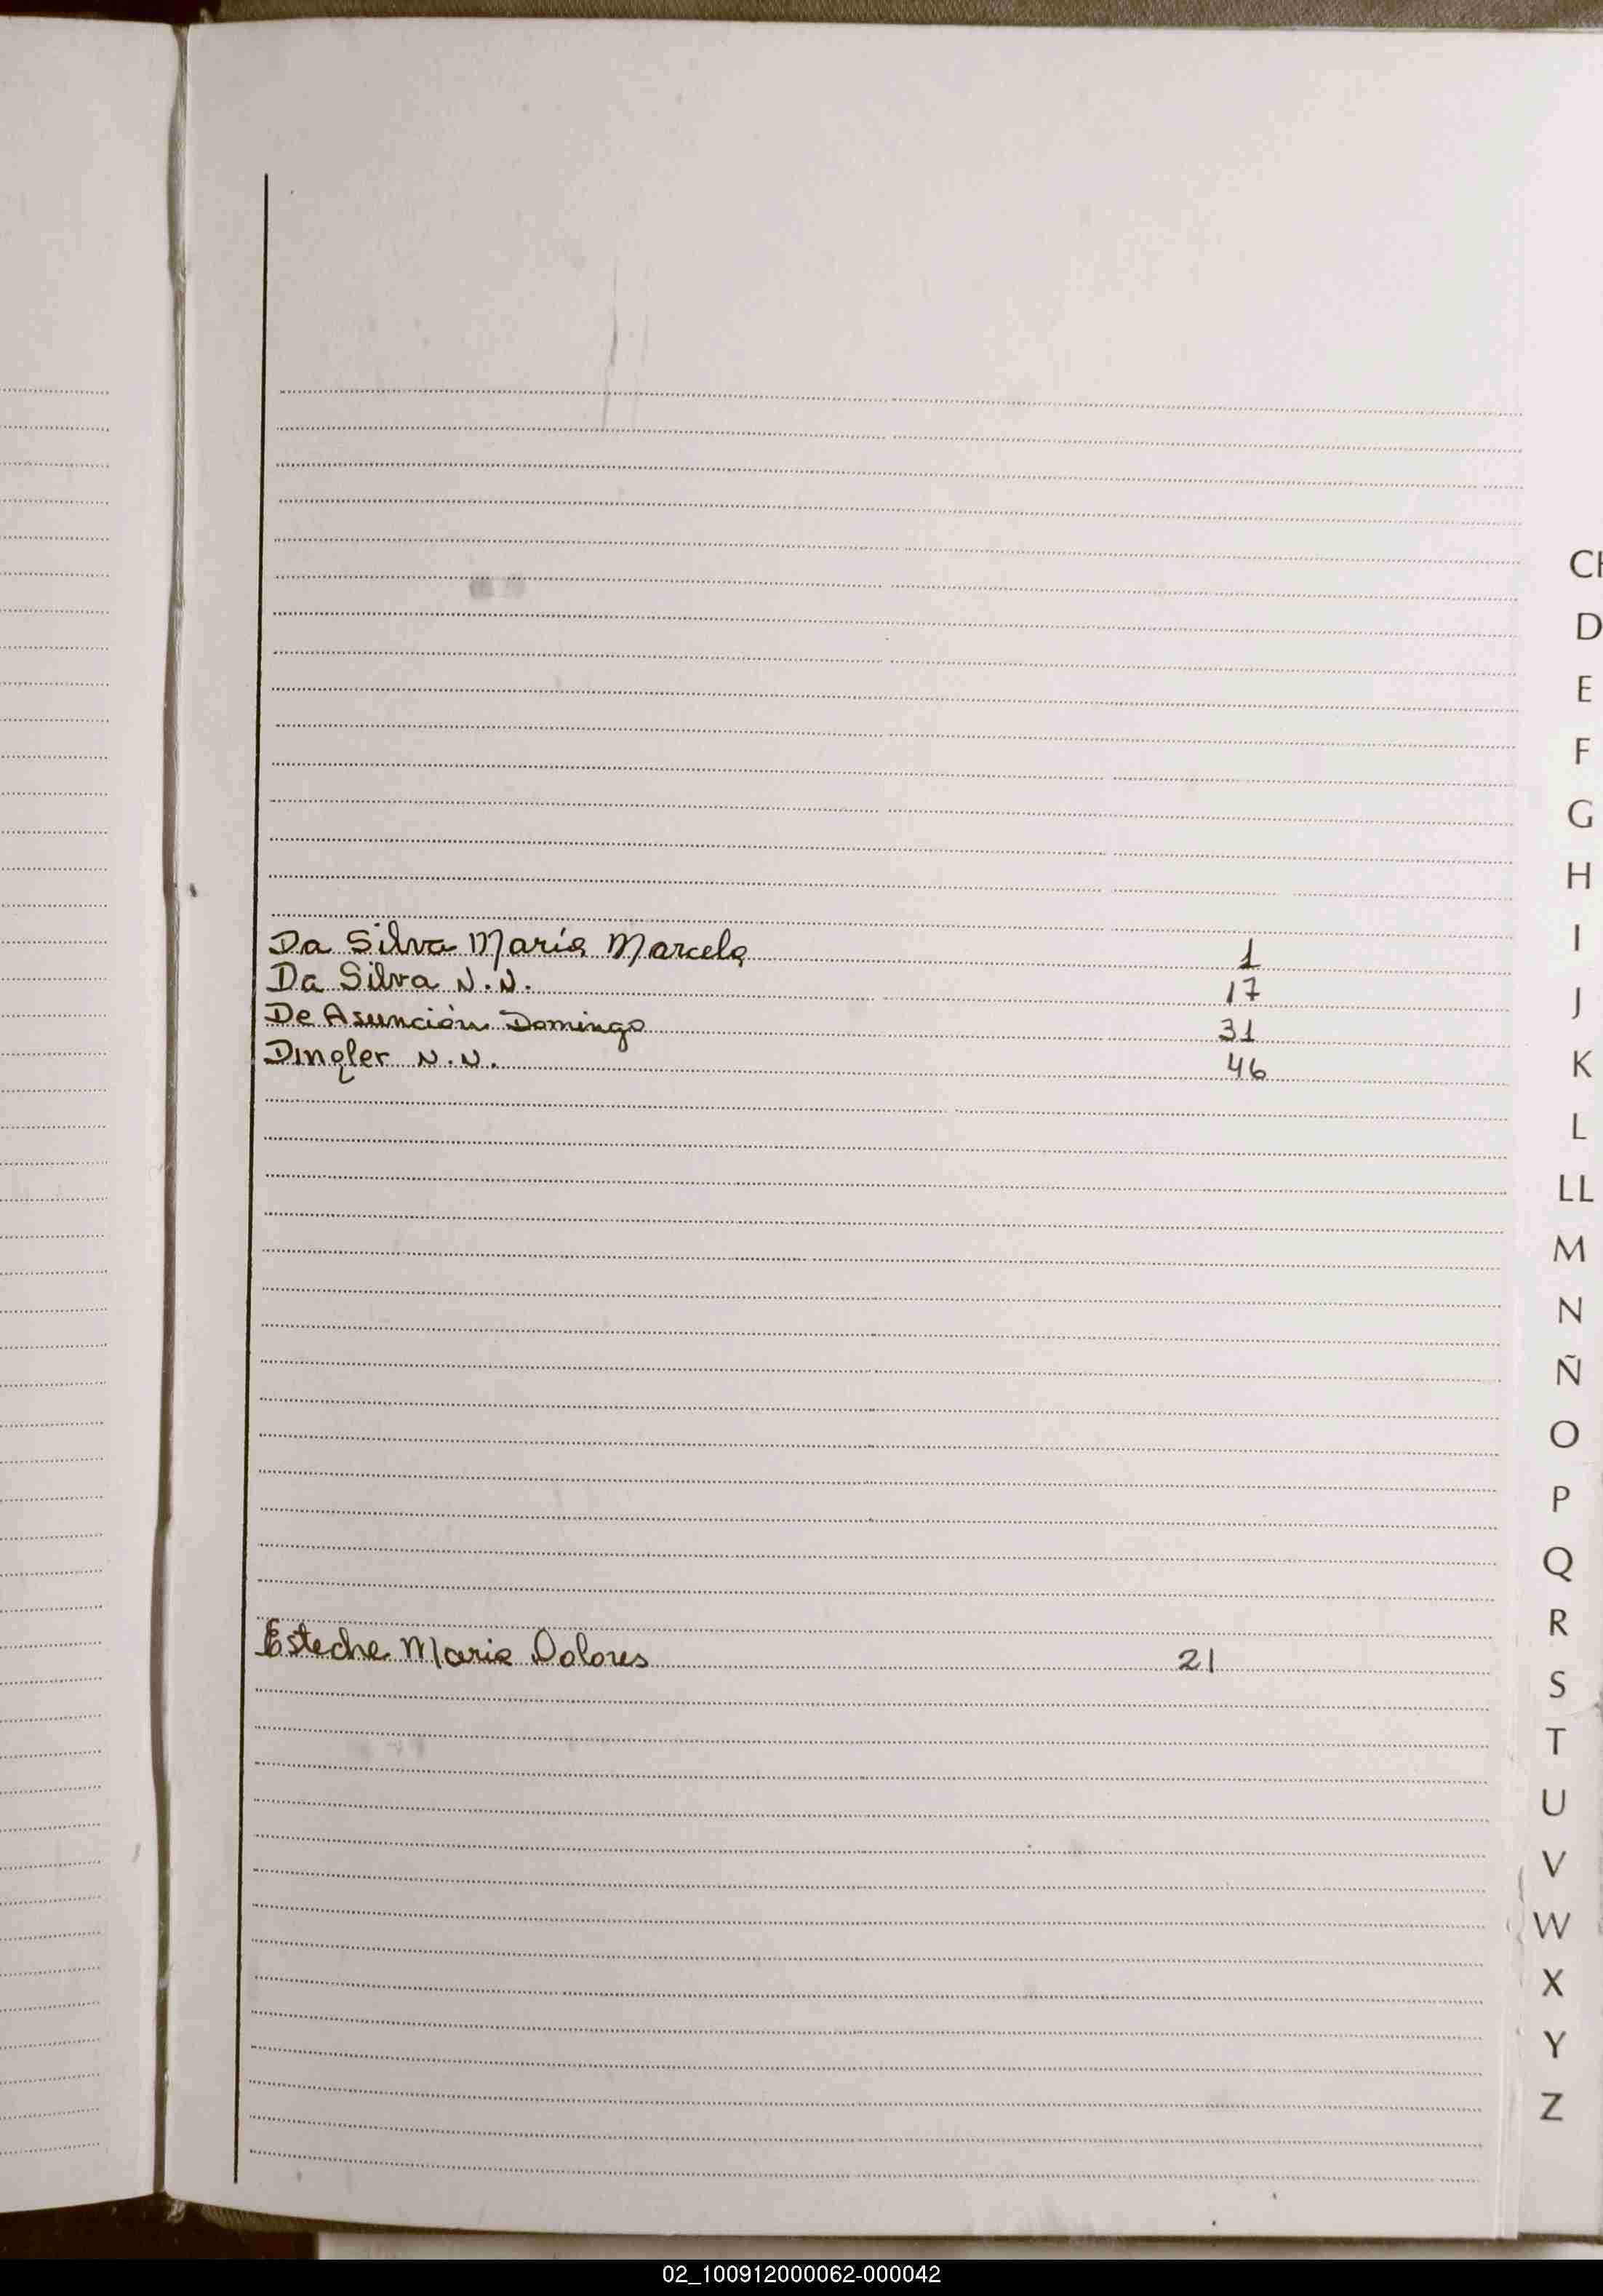 CH
D
E
F
G
H
Da Silva María Marcela 1
I
Da Silva N.N. 17
J
De Asunción Domingo 31
Dingler N.N. 46
K
L
LL
M
N
Ñ
O
P
Q
R
Esteche Maria Dolores 21
S
T
U
V
W
X
Y
Z
02_100912000062-000042